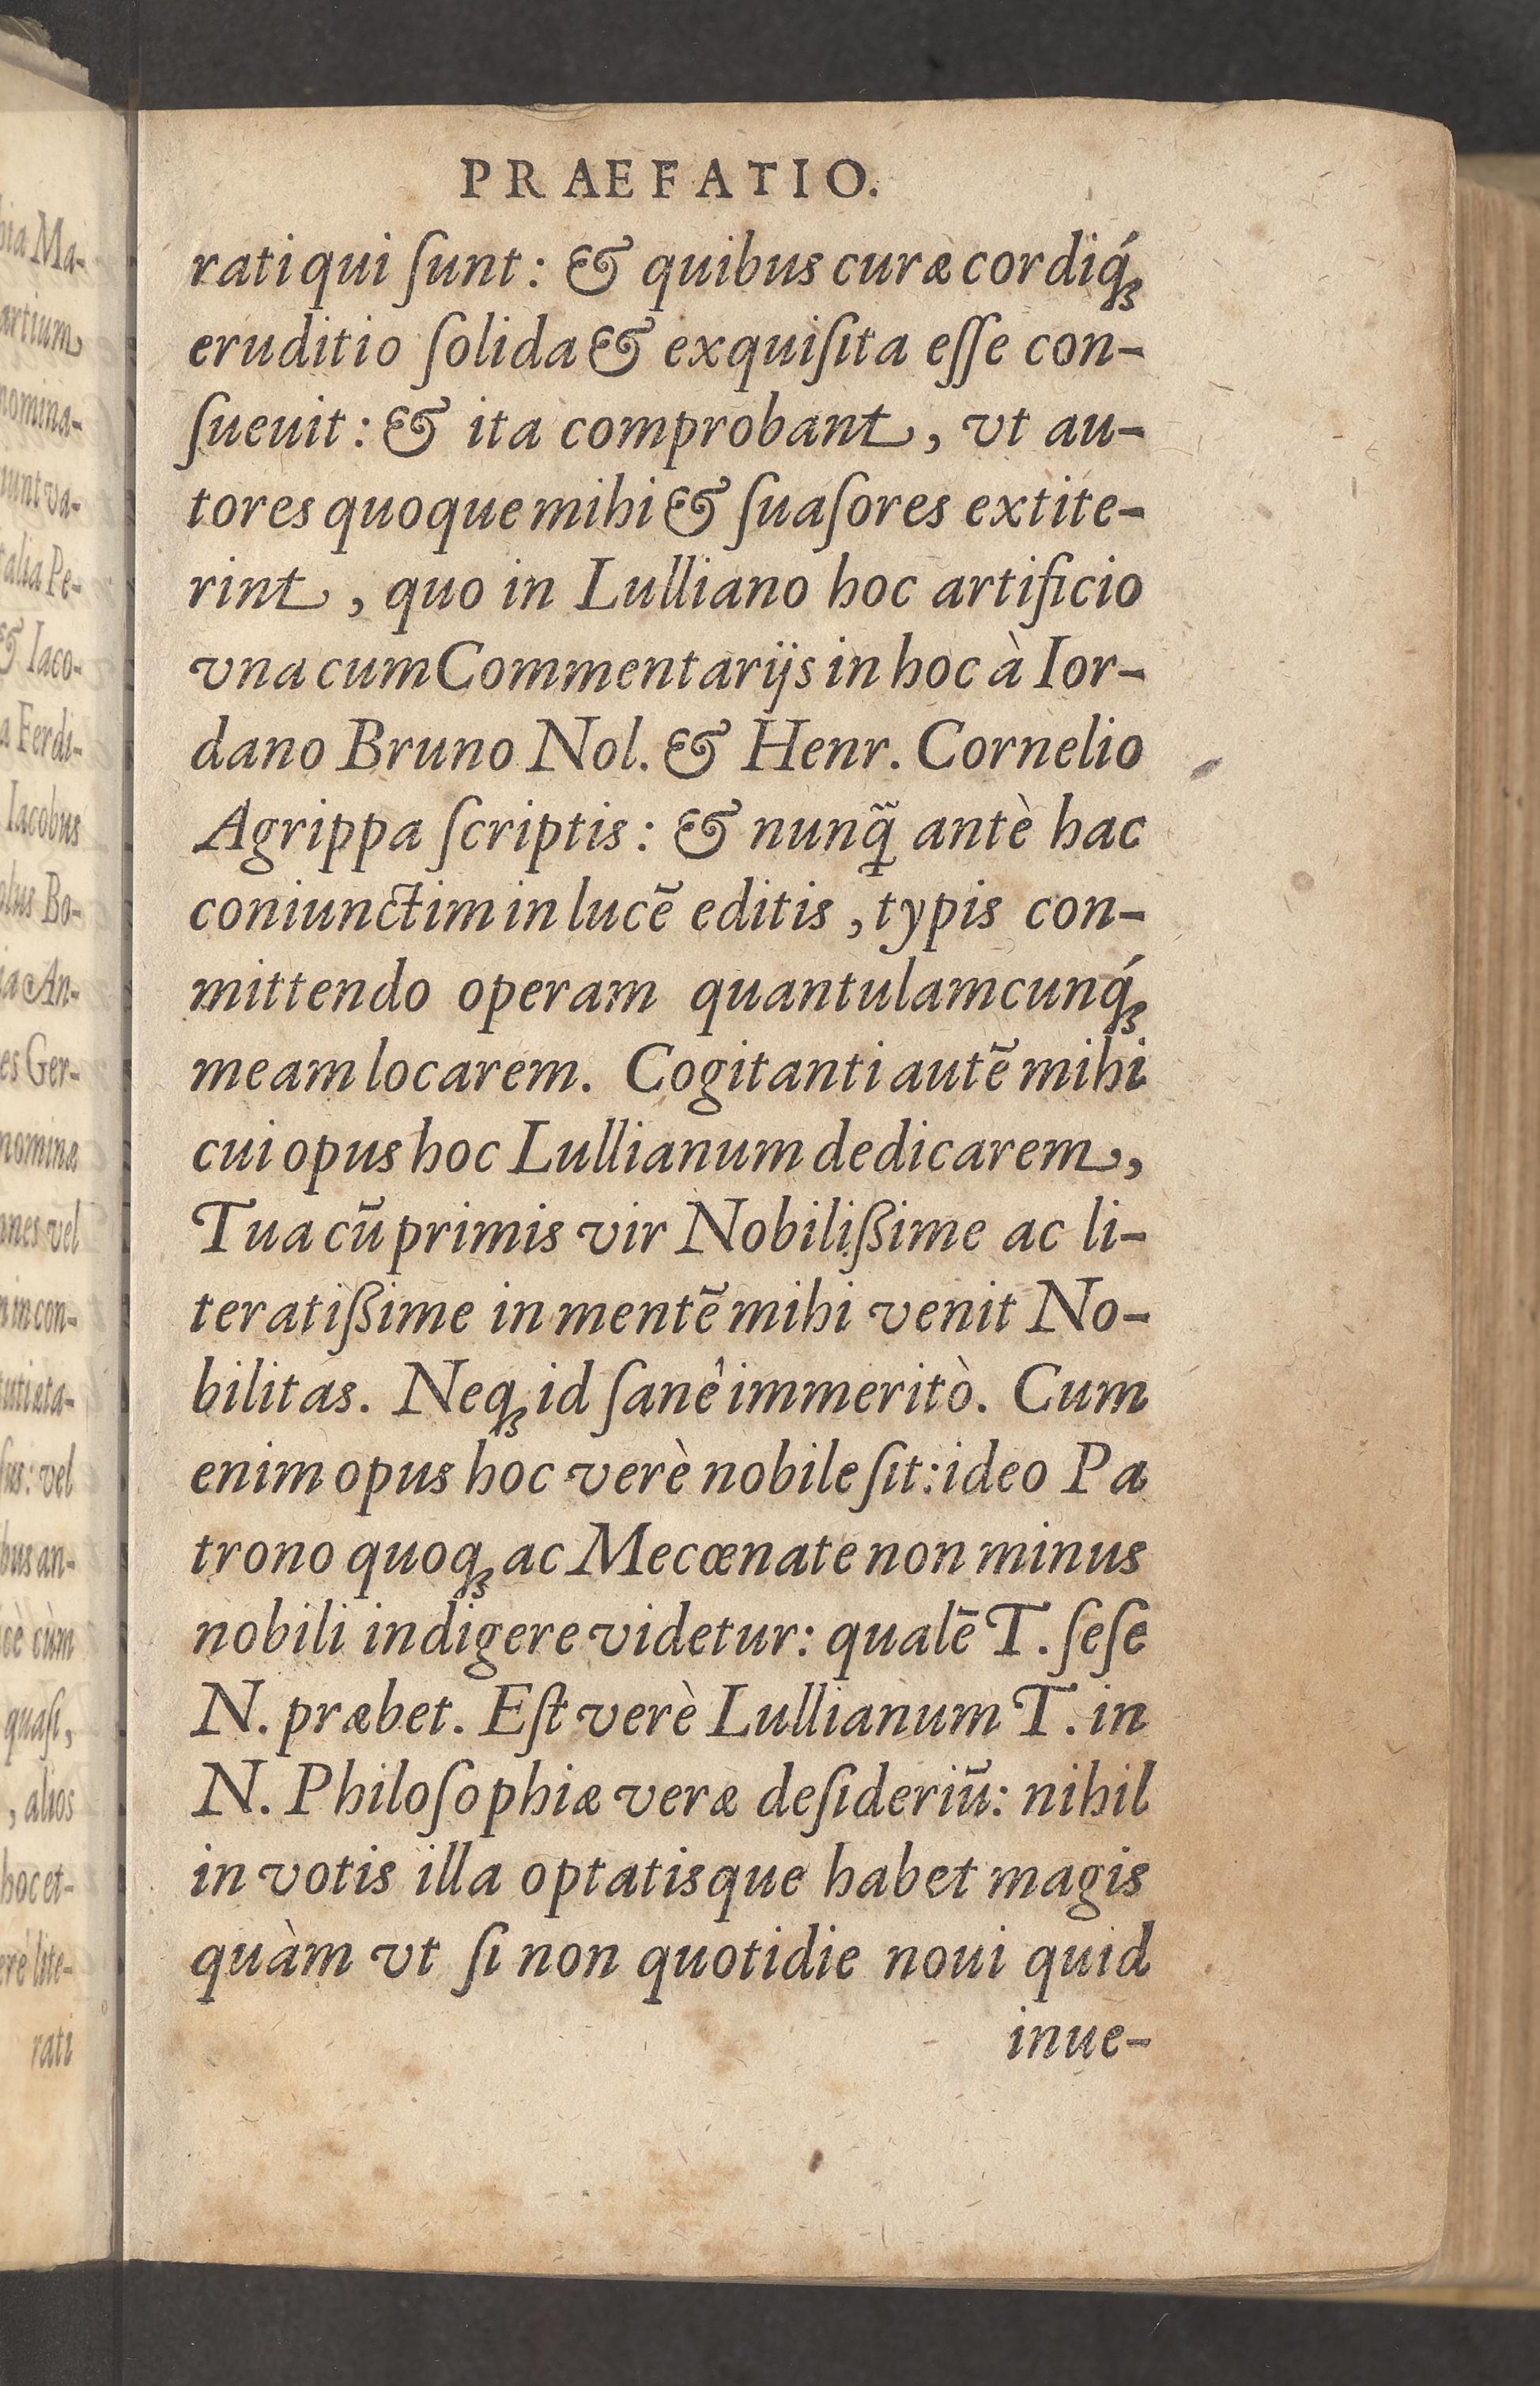 PRAEFATIO.
rati qui ſunt: & quibus curæ cordiq́ꝫ
eruditio ſolida & exquiſita eſſe con-
ſueuit: & ita comprobant, vt au-
tores quoque mihi & ſuaſores extite-
rint, quo in Lulliano hoc artificio
vna cum Commentarijs in hoc à Ior-
dano Bruno Nol. & Henr. Cornelio
Agrippa ſcriptis: & nunꝗ̃ antè hac
coniunctim in lucẽ editis, typis con-
mittendo operam quantulamcunq́ꝫ
meam locarem. Cogitanti autẽ mihi
cui opus hoc Lullianum dedicarem,
Tua cũ primis vir Nobilißime ac li-
teratißime in mentẽ mihi venit No-
bilitas. Neqꝫ id ſanê immeritò. Cum
enim opus hoc verè nobile ſit: ideo Pa
trono quoqꝫ ac Mecœnate non minus
nobili indigere videtur: qualẽ T. ſeſe
N. præbet. Eſt verè Lullianum T. in
N. Philoſophiæ veræ deſideriũ: nihil
in votis illa optatisque habet magis
quàm vt ſi non quotidie noui quid
inue-